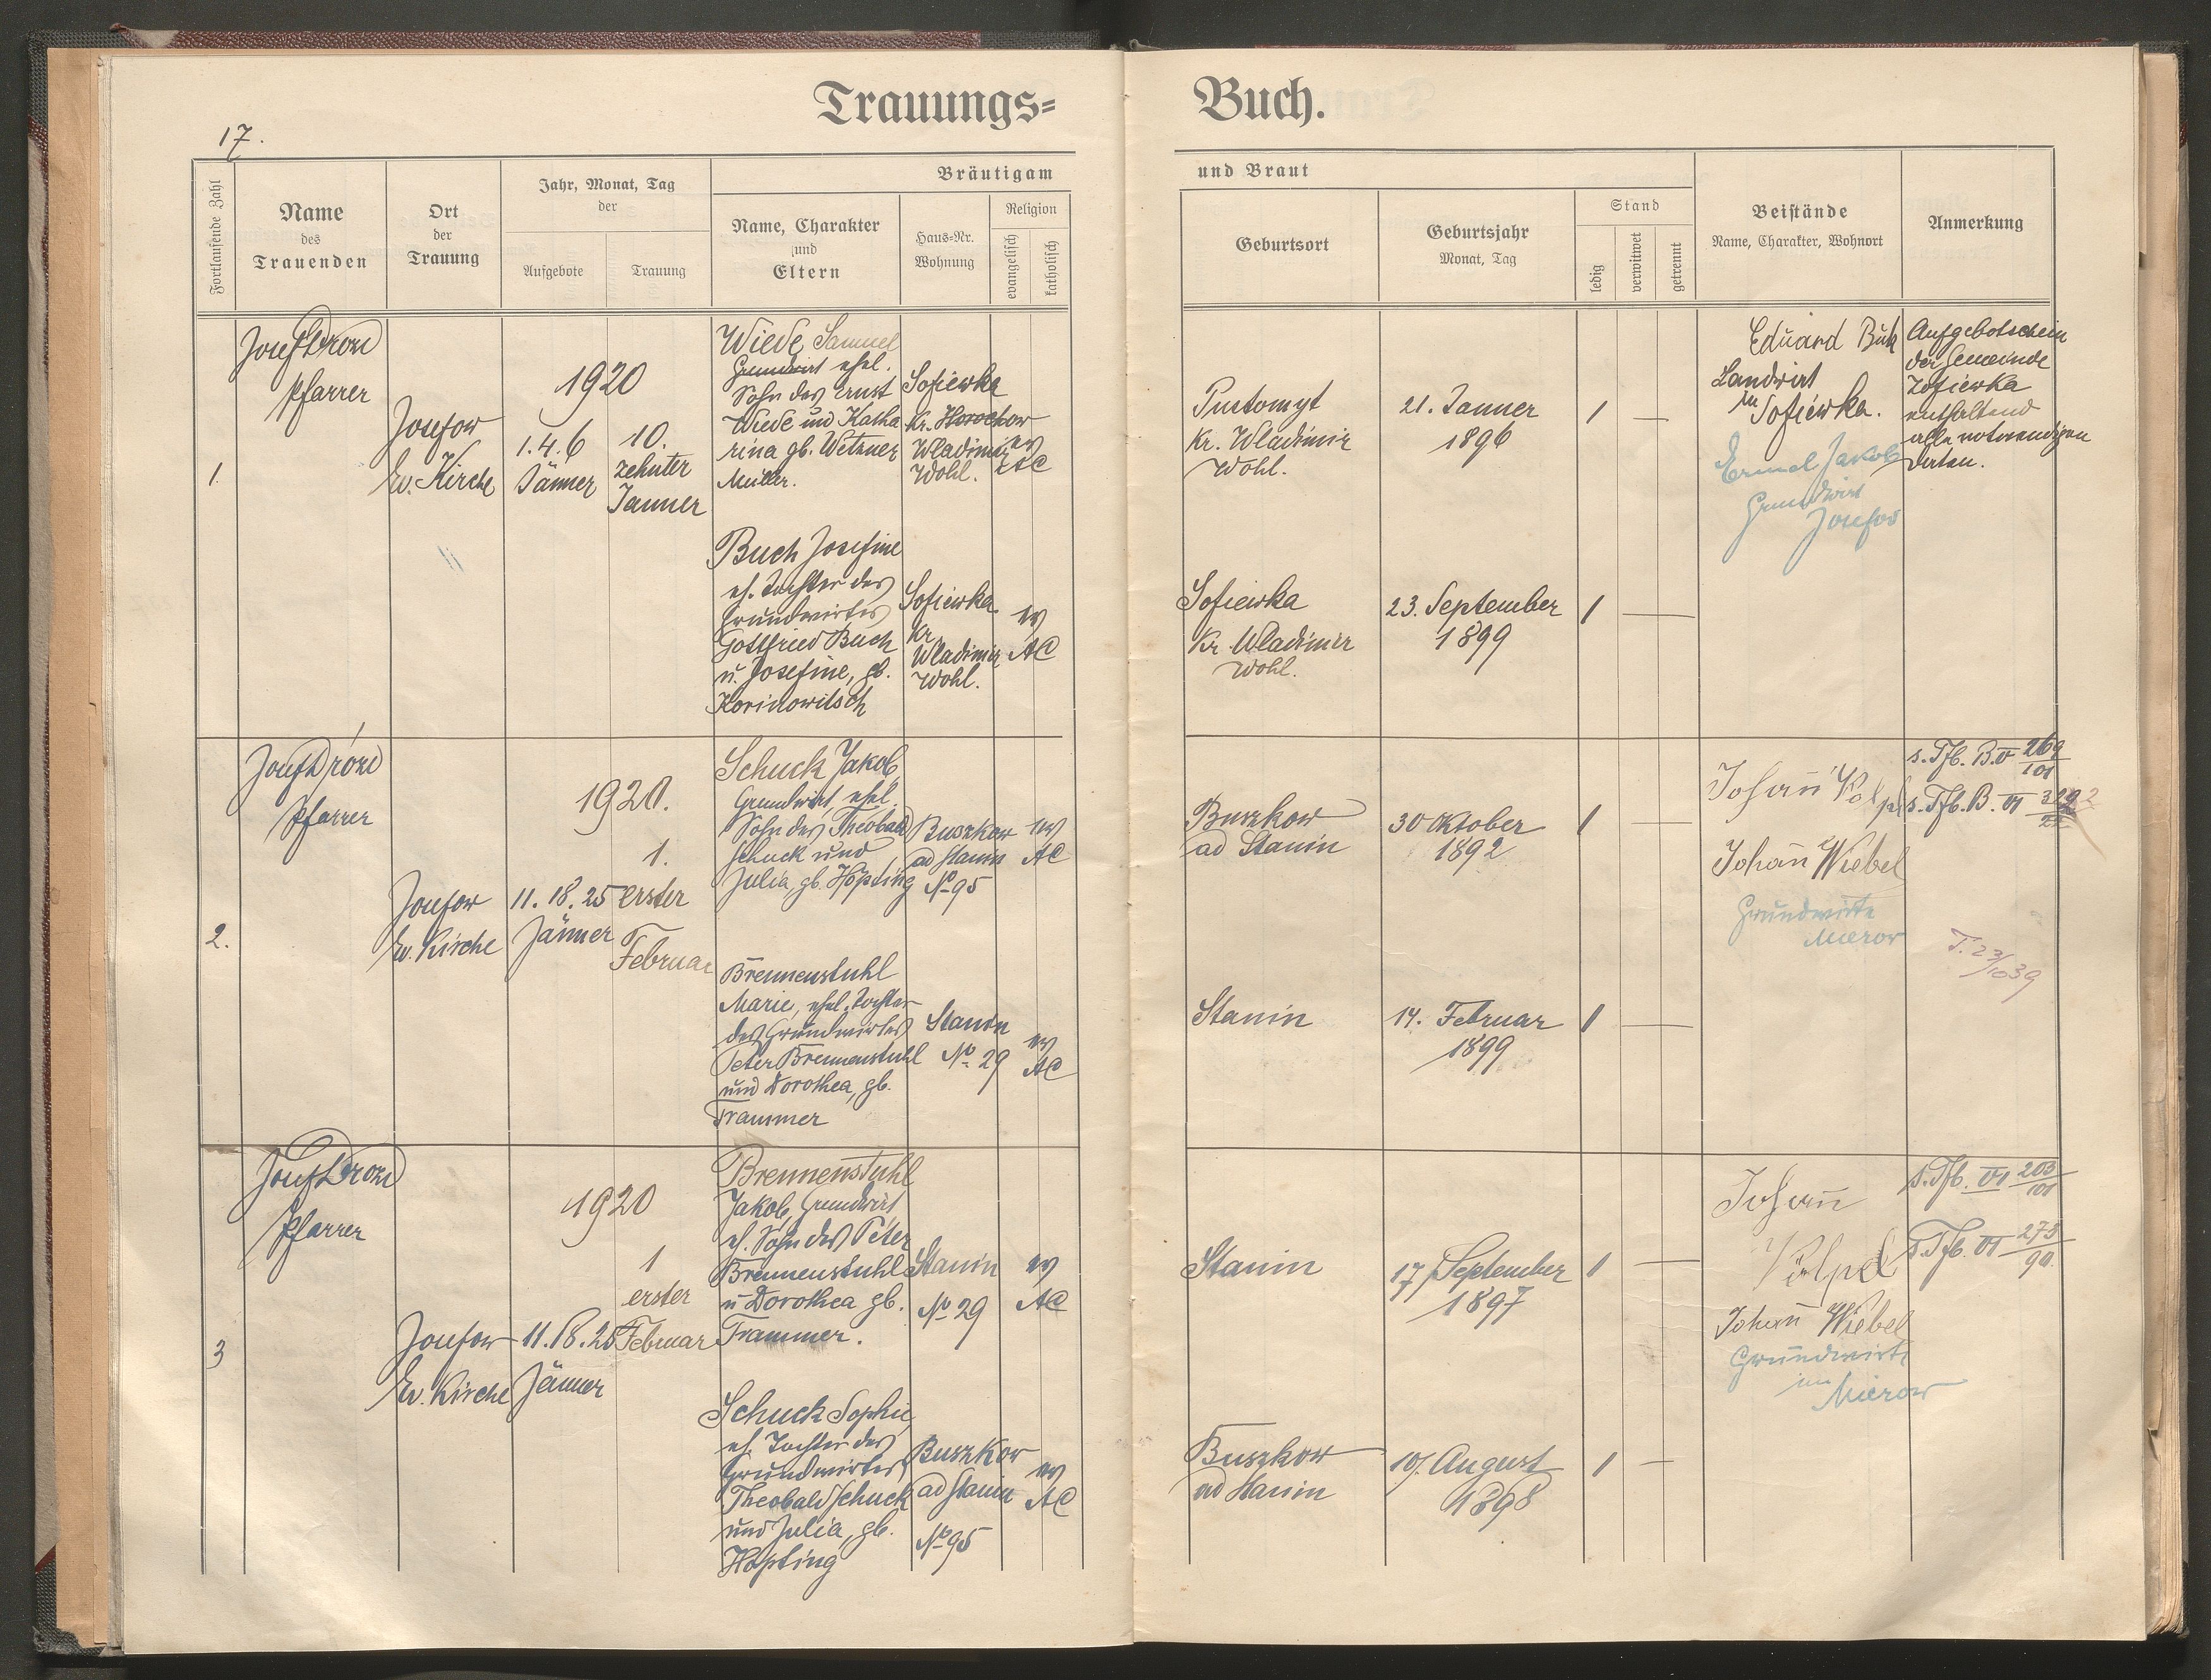 Trauungs=
Buch.
17.
Fortlaufende Zahl
Name
des
Trauenden
Ort
der
Trauung
Jahr, Monat, Tag
der
Aufgebote
Trauung
Bräutigam
Name, Charakter
und
Eltern
Haus=Nr.
Wohnung
Religion
evangelisch
katholisch
und Braut
Geburtsort
Geburtsjahr
Monat, Tag
Stand
ledig
verwitwet
getrennt
Beistände
Name, Charakter, Wohnort
Anmerkung
1.
Josef Drozd
Pfarrer
Josefow
Ev. Kirche
1920
1. 4. 6
Jänner
10.
zehnter
Janner
Wiede Samuel
Grundwirt ehel.
Sohn des Ernst
Wiede und Katha
rina gb. Wetzner
Müller.
Sofiewka
Kr. Horochow
Wladimir
Wohl.
ev
AC
Pustomyt
Kr. Wladimir
Wohl.
21. Janner
1896
1
Eduard
Landwirt
in Sofiewka.
Ermel Jakob
Grundwirt
Josefow
Aufgebotschein
der Gemeinde
Zofiewka
enthaltend
alle notwendigen
Daten.
Buch Josefine
eh. Tochter des
Grundwirtes
Gottfried Buch
u. Josefine, gb.
Korinowitsch
Sofiewka
Kr.
Wladimir
Wohl.
ev
AC
Sofiewka
Kr. Wladimir
Wohl.
23. September
1899
1
2.
Josef Drozd
Pfarrer
Josefow
Ev. Kirche
1920.
11. 18. 25
Jänner
1.
erster
Februar
Schuck Jakob,
Grundwirt, ehel.
Sohn des Theobald
Schuck und
Julia, gb. Höpfing
Buszkow
ad Stanin
No 95
ev
AC
Buszkow
ad Stanin
30 Oktober
1892
1
Johann
Johann Wiebel
Grundwirte
Mierow
s. Tfb. B. V 269/101
s. Tfb. B. VI
T. 23/10 39
Brennenstuhl
Marie, ehel. Tochter
des Grundwirtes
Peter Brennenstuhl
und Dorothea, gb.
Trammer
Stanin
No 29
ev
AC
Stanin
14. Februar
1899
1
3
Josef Drozd
Pfarrer
Josefow
Ev. Kirche
1920
11. 18. 25
Jänner
1
erster
Februar
Brennenstuhl
Jakob, Grundwirt
eh. Sohn des Peter
Brennenstuhl
u Dorothea gb.
Trammer.
Stanin
No 29
ev
AC
Stanin
17 September
1897
1
Johann
Johann Wiebel
Grundwirte
in Mierow
s. Tfb. VI 203/101
s. Tfb. VI 273/90
Schuck Sophie,
eh. Tochter des
Grundwirtes
Theobald Schuck
und Julia, gb.
Höpfing
Buszkow
ad Stanin
No 95
ev
AC
Buszkow
ad Stanin
10. August
1898
1